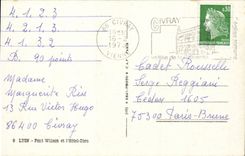 4.1.2.3
4.2.1.3
4.1.3.2
B. 90 points
Madame
Marguerite Ribs
13 Rue Victor Hugo
86400 Civray
86 CIVRAY
VIENNE
CIVRAY
0,30
Cadet Rousselle
Serge Reggiani
Cedex 1605
75300 Paris-Brune
LYEN - Pont Wilson et l'Hôtel-Dieu